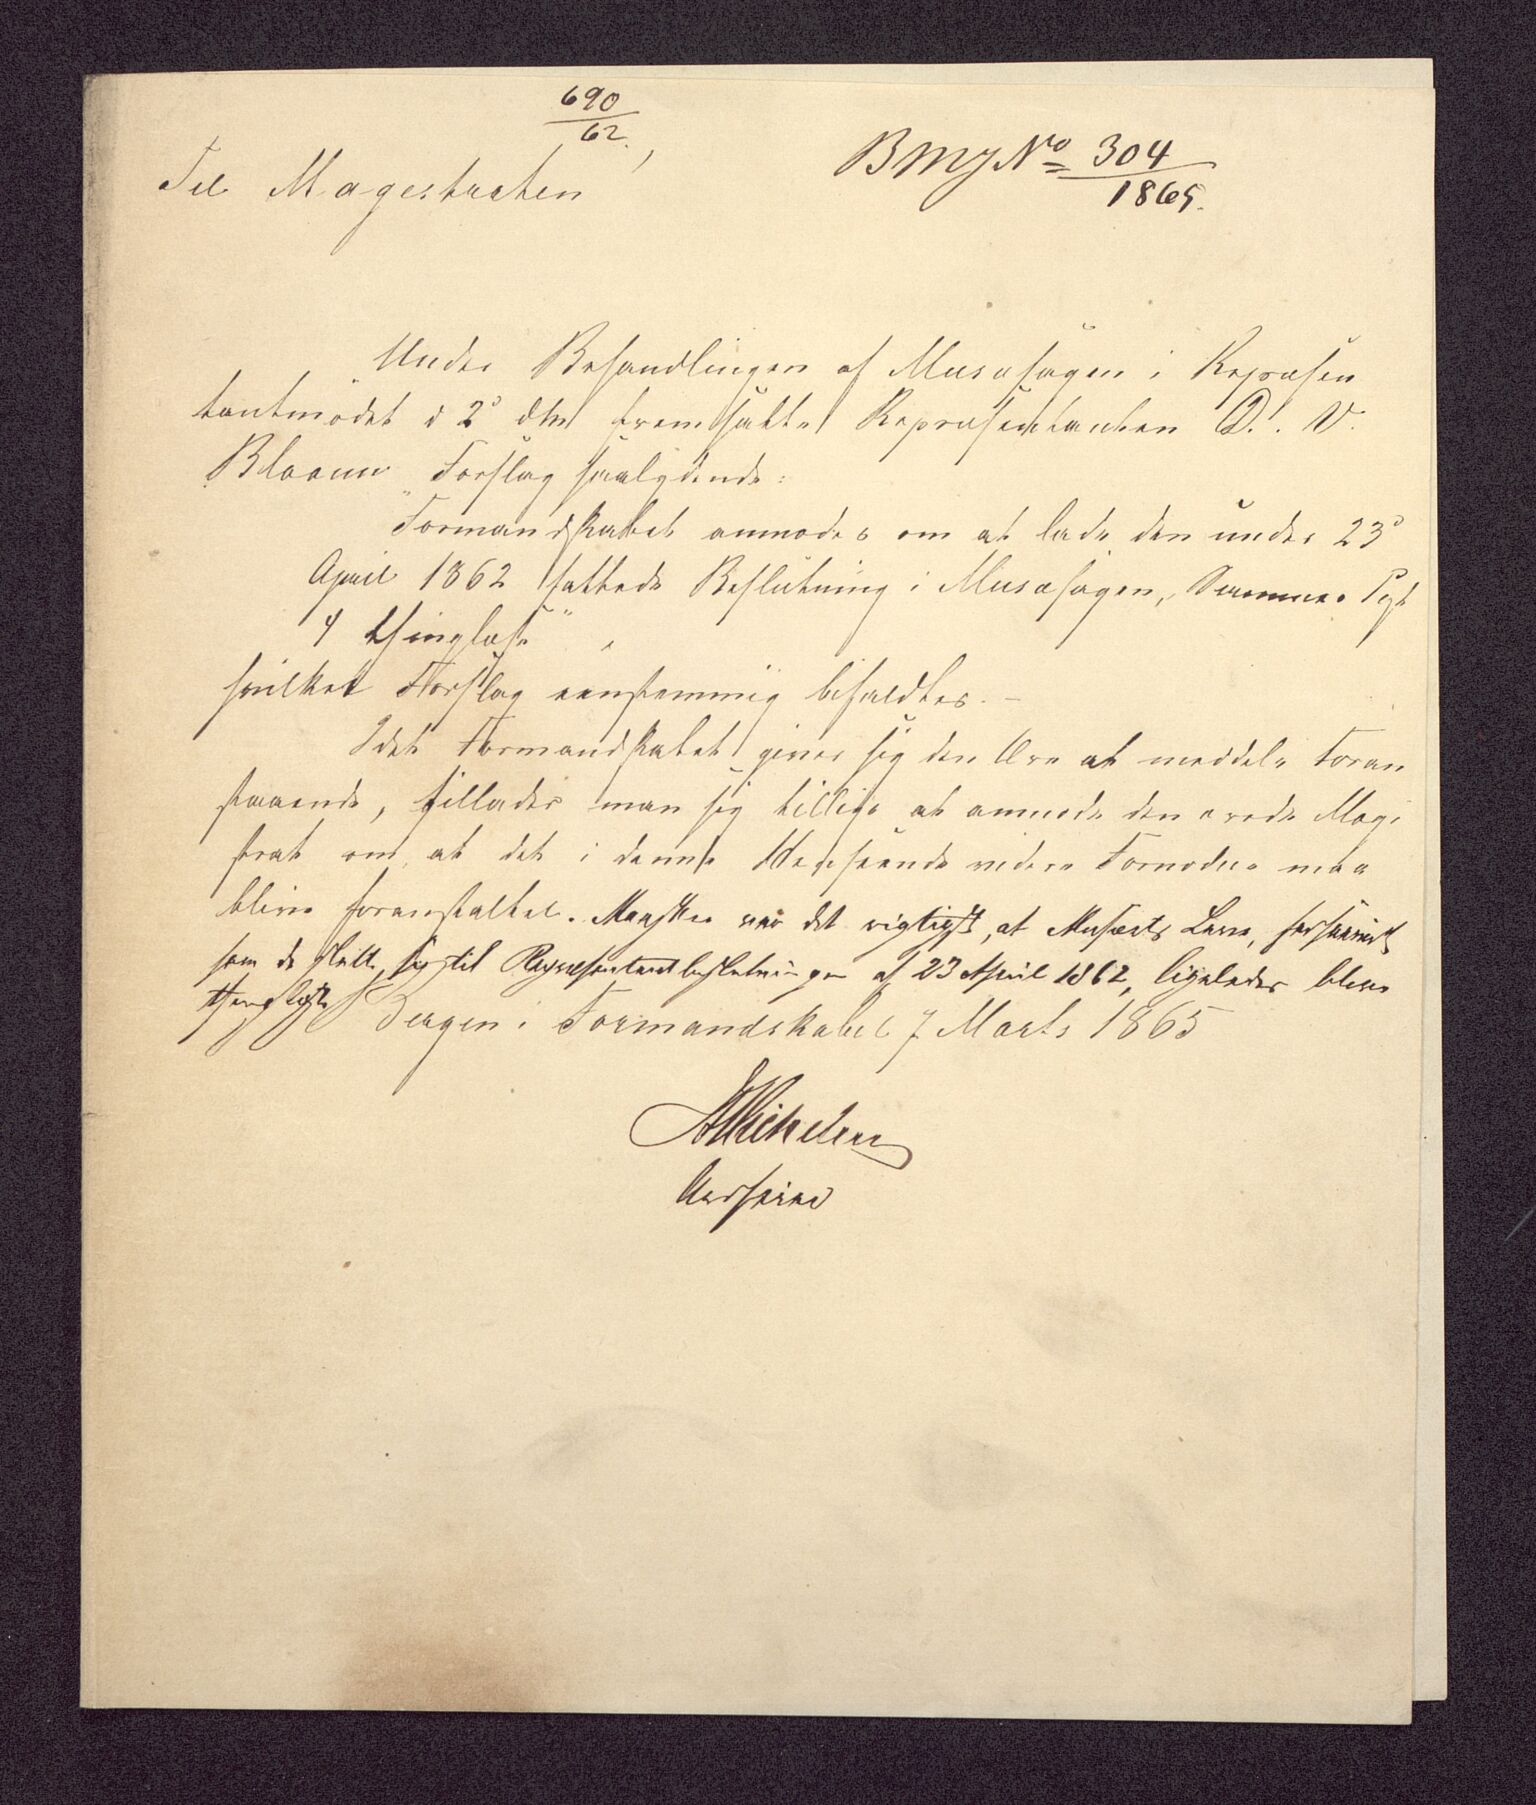 690
62.
BMJ No 304
1865.
Til Magestraten
Under Behandlingen af Musæsagen i Repræsen
tantmödet d 2d dM fremsatte Repræsentanten D. V.
Blaauw Forslag saalydende:
"Formandskabet anmodes om at lade den under 23d
April 1862 fattede Beslutning i Musæsagen,
thinglæse",
hvilket Forslag eenstemmig bifaldtes. –
Idet Formandskabet giver sig den Ære at meddele Foran
staaende, tillader man sig tillige at anmode den ærede Magi
strat om at det i denne Henseende videre Fornødne maa
blive foranstaltet. Maaskee var det rigtigst, at Musæets Love, forsaavidt
som de støtte sig til Repræsentantbeslutningen af 23 April 1862, ligeledes bleve
thinglyste
Bergen i Formandskabet 7 Marts 1865